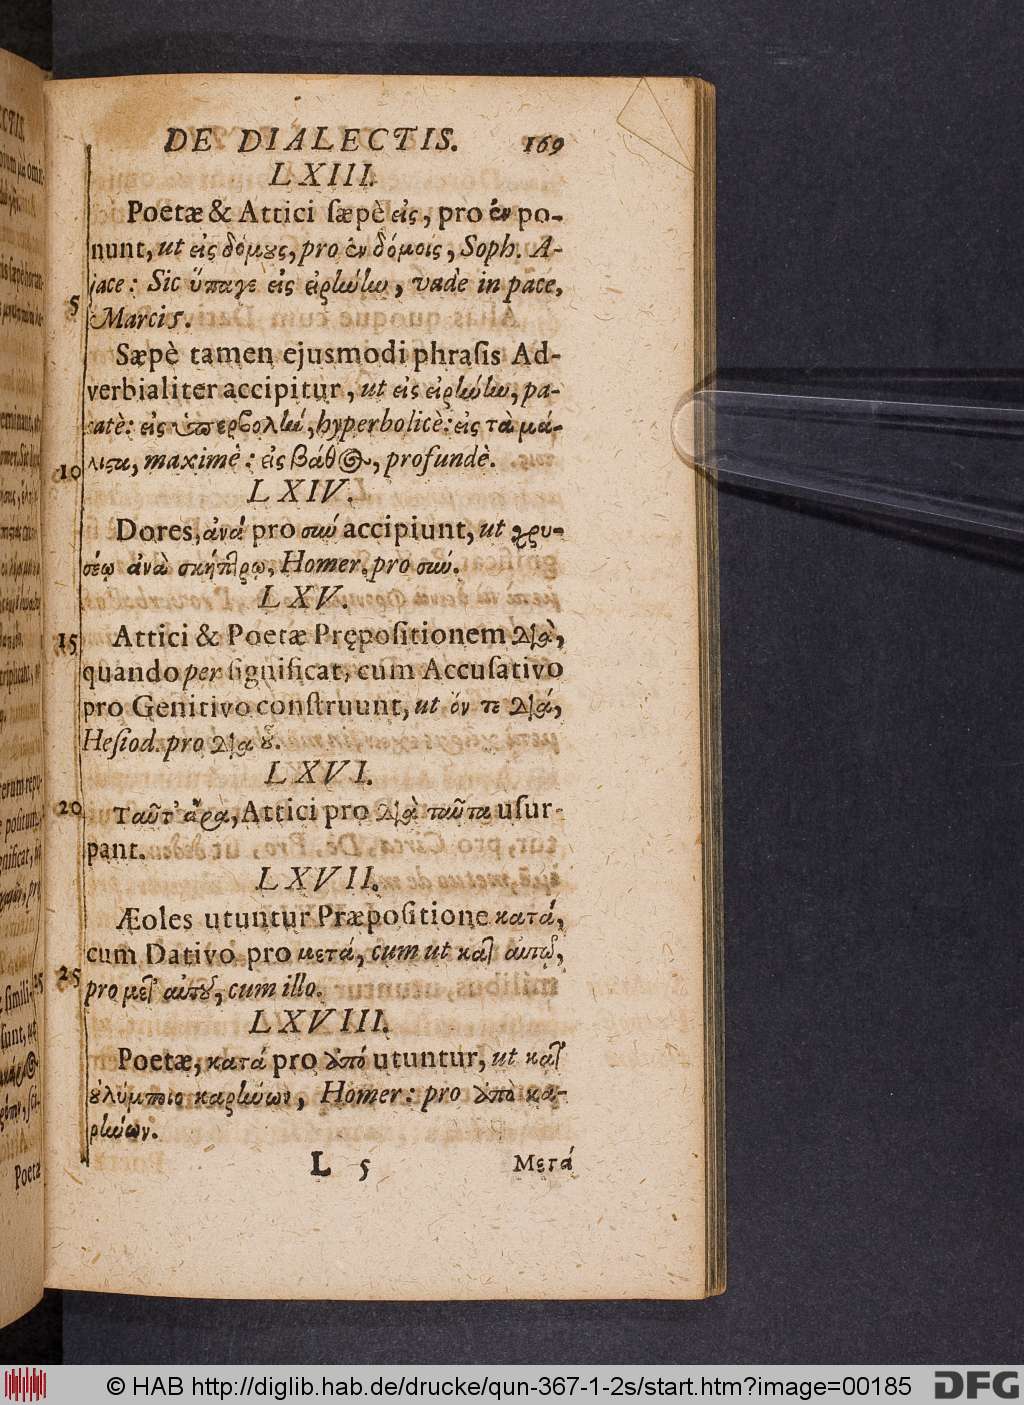 DE DIALECTIS. 169
LXIII.
Poetæ & Attici sæpè εἰς, pro ἐν po-
nunt, ut εἰς δόμȣς, pro ἐν δόμοις, Soph. A-
jace: Sic ὕπαγε εἰς εἰρήνην, vade in pace,
5 Marci 5.
Sæpè tamen ejusmodi phrasis Ad-
verbialiter accipitur, ut εἰς εἰρήνην, pa-
catè: εἰς ὑπερβολὴν, hyperbolicè: εἰς τὰ μά-
10 λιϛα, maximè: εἰς βάθος, profundè.
LXIV.
Dores, ἀνά pro σιώ accipiunt, ut χρυ-
σέῳ ἀνὰ σκήπτρῳ, Homer. pro σύν.
LXV.
15 Attici & Poetæ Prępositionem διὰ,
quando per significat, cum Accusativo
pro Genitivo construunt, ut ὅν τε διά,
Hesiod. pro δια ȣ̃.
LXVI.
20 Ταῦτ' ἄρα, Attici pro διὰ ταῦτα usur-
pant.
LXVII.
Æoles utuntur Præpositione κατά,
cum Dativo pro μετά, cum ut κατ' αὐτῷ,
25 pro μετ' αὐτȣ̃, cum illo.
LXVIII.
Poetæ, κατά pro ἀπό utuntur, ut κατ'
ȣλύμποιο καρήνων, Homer: pro ἀπὸ κα-
ρήνων.
L 5 Μετά
© HAB http://diglib.hab.de/drucke/qun-367-1-2s/start.htm?image=00185 DFG